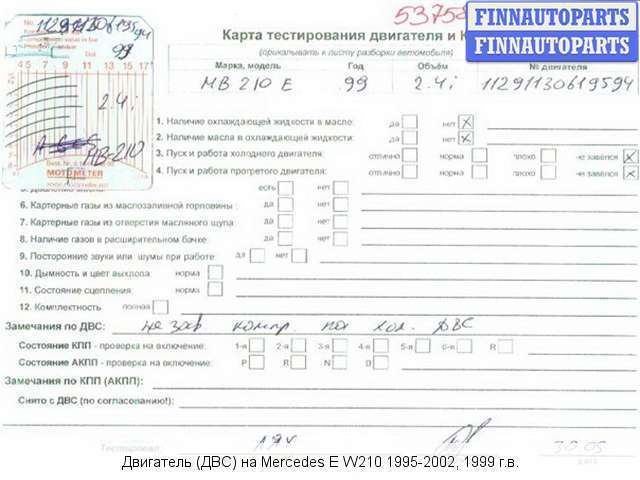 53758
FINNAUTOPARTS
FINNAUTOPARTS
No. 11291130619594
99
4 5 7 9 11 13 15 17
2.4i
MB-210
MOTOMETER
Карта тестирования двигателя и К
(прикалывать к листу разборки автомобиля)
Марка, модель Год Объём № двигателя
MB 210 E 99 2.4i 11291130619594
1. Наличие охлаждающей жидкости в масле: да нет X
2. Наличие масла в охлаждающей жидкости: да нет X
3. Пуск и работа холодного двигателя: отлично норма плохо не завёлся X
4. Пуск и работа прогретого двигателя: отлично норма плохо не завёлся X
5. Давление масла: есть нет
6. Картерные газы из маслозаливной горловины: да нет
7. Картерные газы из отверстия масляного щупа: да нет
8. Наличие газов в расширительном бачке: да нет
9. Посторонние звуки или шумы при работе: да нет
10. Дымность и цвет выхлопа норма
11. Состояние сцепления: норма
12. Комплектность полная
Замечания по ДВС: не зав компр. на хол. ДВС
Состояние КПП - проверка на включение: 1-я 2-я 3-я 4-я 5-я 6-я R
Состояние АКПП - проверка на включение: P R N D
Замечания по КПП (АКПП):
Снято с ДВС (по согласованию!):
Тестировал 30.05
дата
Двигатель (ДВС) на Mercedes E W210 1995-2002, 1999 г.в.